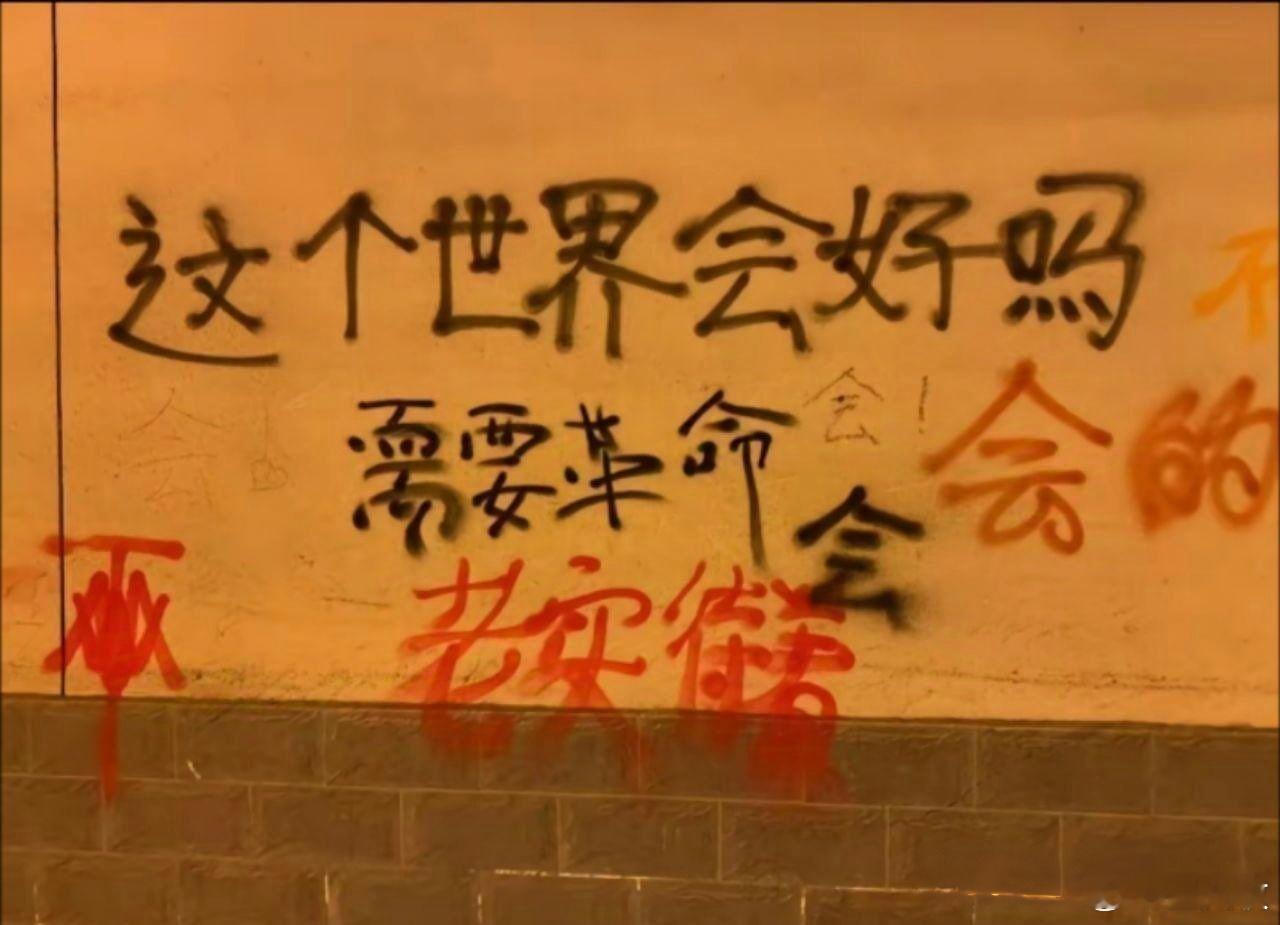 这个世界会好吗
不
会
需要革命
会!
会的
会
老实